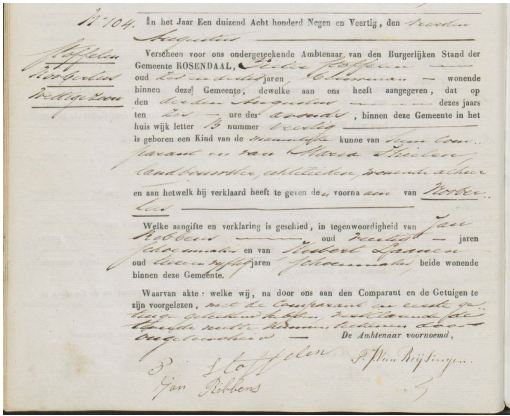 No 104.
In het Jaar Een duizend Acht honderd Negen en Veertig, den vierden
Augustus
Verscheen voor ons ondergeteekende Ambtenaar van den Burgerlijken Stand der
Stoffelen
Gemeente ROSENDAAL, Pieter Stoffelen
Norbertus
oud jaren, wonende
binnen deze Gemeente, dewelke aan ons heeft aangegeven, dat op
den derden Augustus dezes jaars
ten zes ure des avonds, binnen deze Gemeente in het
huis wijk letter B nummer veertig
is geboren een Kind van de mannelijke kunne van hem Com-
parant en van Maria
landbouwster, echtelieden, wonende alhier
en aan hetwelk hij verklaard heeft te geven den voornaam van Norber-
tus
Welke aangifte en verklaring is geschied, in tegenwoordigheid van Jan
Ribbens oud veertig jaren
schoenmaker en van Hubert
oud jaren schoenmaker beide wonende
binnen deze Gemeente.
Waarvan akte: welke wij, na door ons aan den Comparant en de Getuigen te
zijn voorgelezen, met de comparant en eerste ge-
tuige geteekend hebben, verklarende de
tweede niet te kunnen teekenen door
ongeleerdheid De Ambtenaar voornoemd,
P Stoffelen
Jan Ribbens